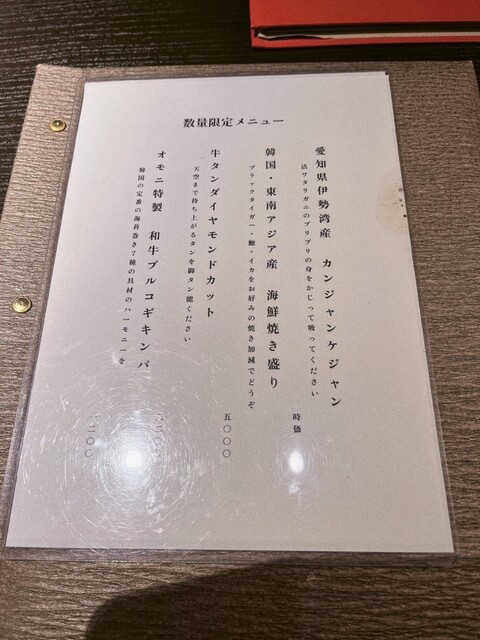 数量限定メニュー
愛知県伊勢湾産　カンジャンケジャン
活ワタリガニのプリプリの身をかじって吸ってください
時価
韓国・東南アジア産　海鮮焼き盛り
ブラックタイガー・鮑・イカをお好みの焼き加減でどうぞ
五〇〇〇
牛タンダイヤモンドカット
天空まで持ち上がるタンを御タン能ください
二〇〇
オモニ特製　和牛プルコギキンパ
韓国の定番の海苔巻き7種の具材のハーモニーを
一二〇〇